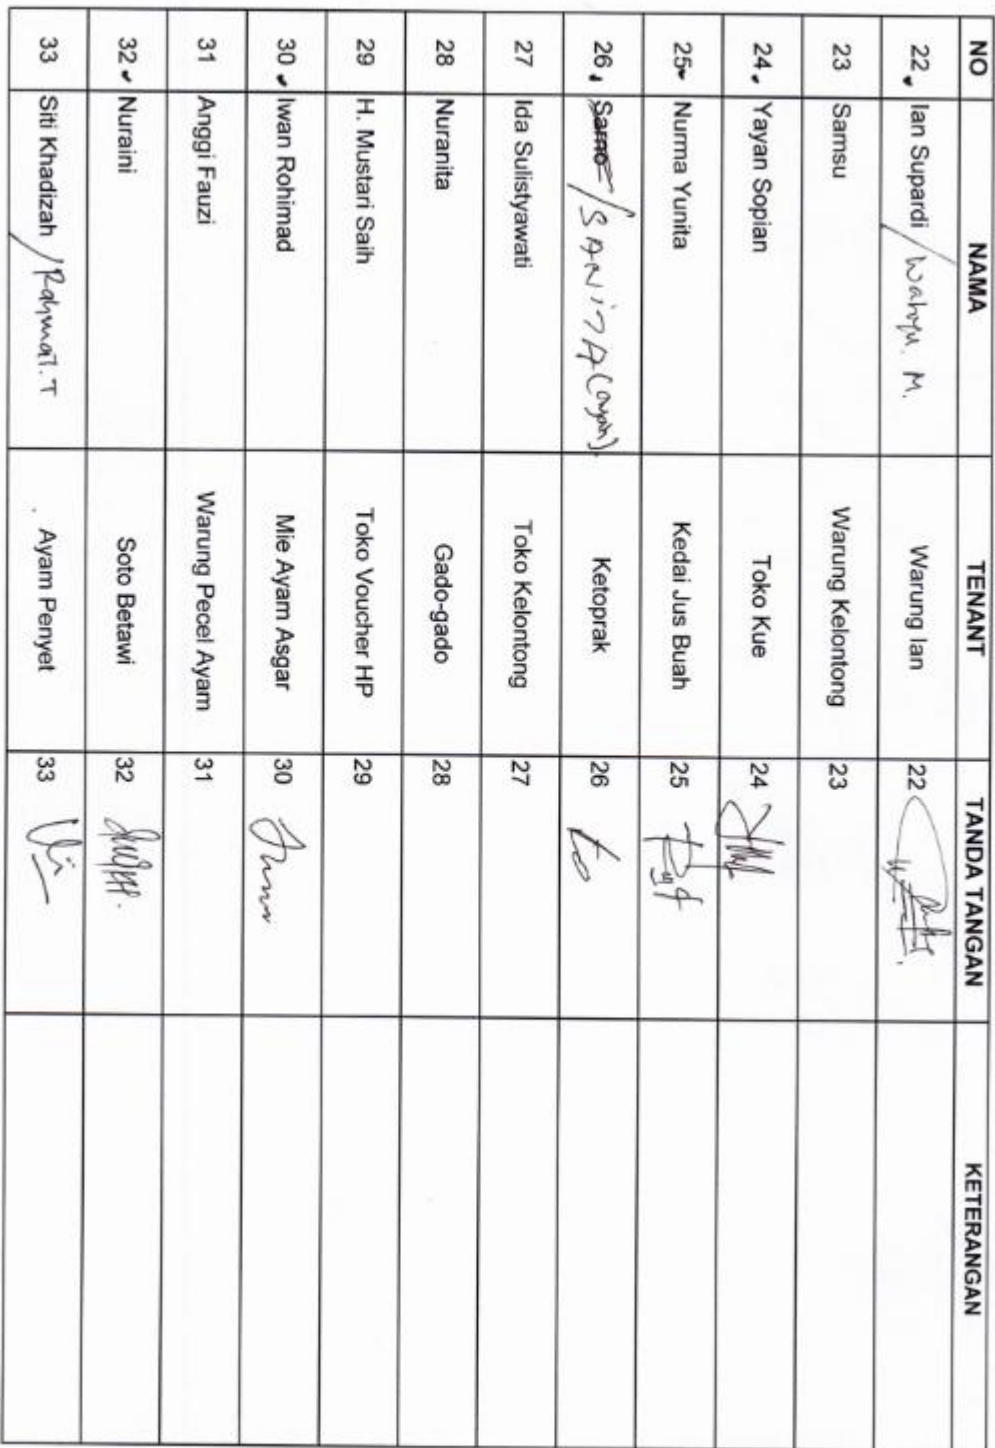 NO NAMA TENANT TANDA TANGAN KETERANGAN
22 Ian Supardi / Wahyu. M. Warung Ian 22
23 Samsu Warung Kelontong 23
24 Yayan Sopian Toko Kue 24
25 Nurma Yunita Kedai Jus Buah 25
26 Sarno / SANITA Ketoprak 26
27 Ida Sulistyawati Toko Kelontong 27
28 Nuranita Gado-gado 28
29 H. Mustari Saih Toko Voucher HP 29
30 Iwan Rohimad Mie Ayam Asgar 30
31 Anggi Fauzi Warung Pecel Ayam 31
32 Nuraini Soto Betawi 32
33 Siti Khadizah / Rahmat. T Ayam Penyet 33